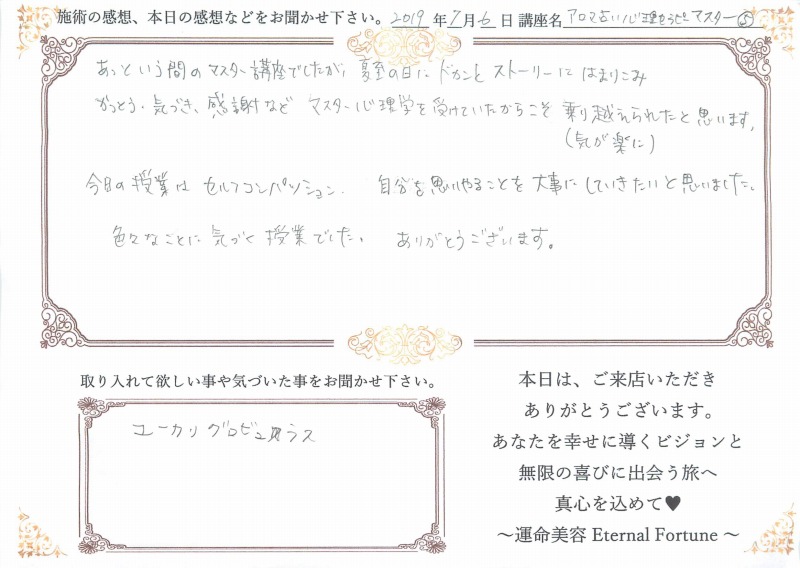 施術の感想、本日の感想などをお聞かせ下さい。2019年7月6日 講座名 アロマ占い心理セラピーマスター⑤
あっという間のマスター講座でしたが、夏至の日にドカンとストーリーにはまりこみ
かっとう・気づき、感謝など マスター心理学を受けていたからこそ 乗り越えられたと思います。
(気が楽に)
今日の授業は セルフコンパッション. 自分を思いやることを大事にしていきたいと思いました。
色々なことに気づく授業でした。 ありがとうございます。
取り入れて欲しい事や気づいた事をお聞かせ下さい。
ユーカリ グロビュラス
本日は、ご来店いただき
ありがとうございます。
あなたを幸せに導くビジョンと
無限の喜びに出会う旅へ
真心を込めて♥
～運命美容 Eternal Fortune ～